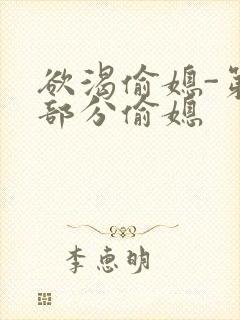 欲渴偷媳-第
部分偷媳
李恵明